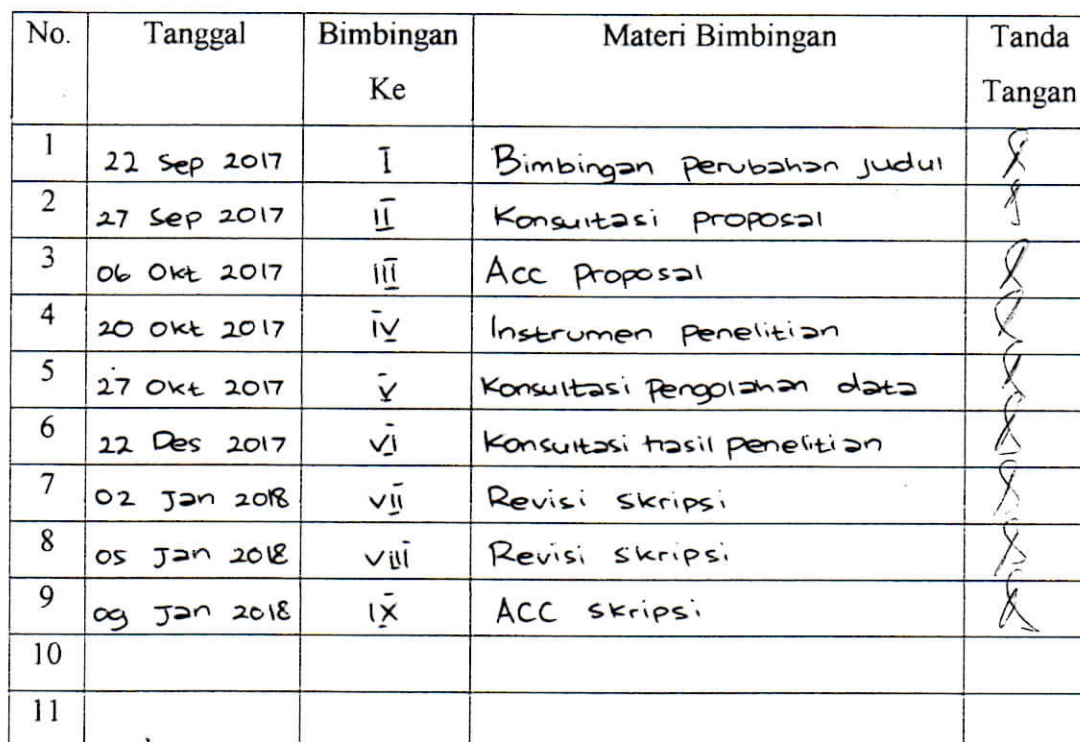 No. Tanggal Bimbingan Ke Materi Bimbingan Tanda Tangan
1 22 Sep 2017 I Bimbingan perubahan judul
2 27 Sep 2017 II Konsultasi proposal
3 06 Okt 2017 III Acc Proposal
4 20 Okt 2017 IV Instrumen penelitian
5 27 Okt 2017 V Konsultasi pengolahan data
6 22 Des 2017 VI Konsultasi hasil penelitian
7 02 Jan 2018 VII Revisi skripsi
8 05 Jan 2018 VIII Revisi skripsi
9 09 Jan 2018 IX ACC skripsi
10
11